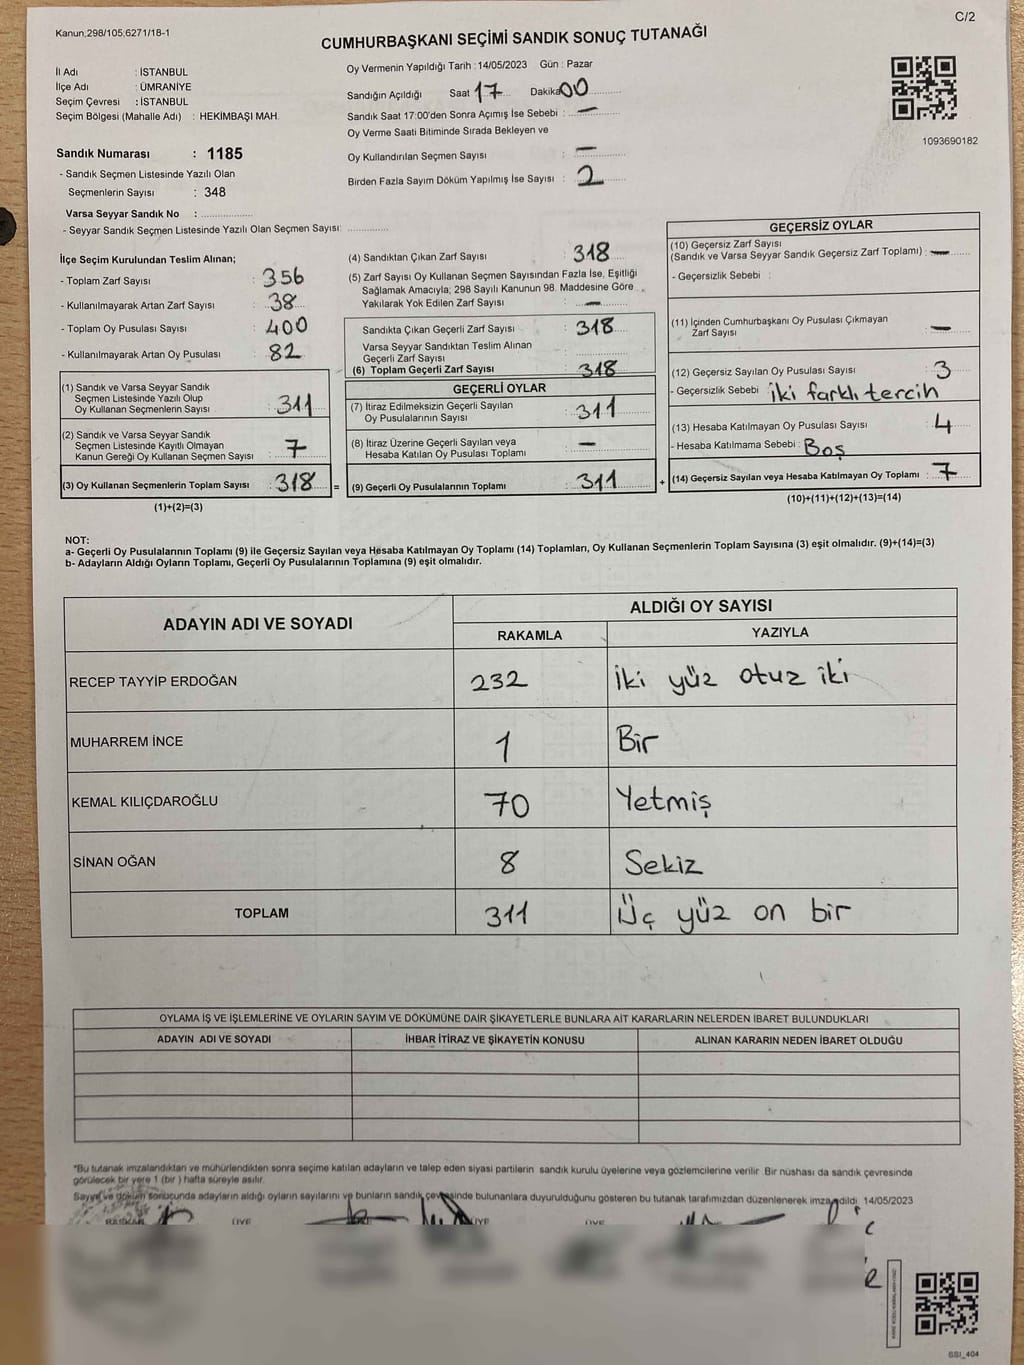 Kanun;298/105;6271/18-1
C/2
CUMHURBAŞKANI SEÇİMİ SANDIK SONUÇ TUTANAĞI
İl Adı : İSTANBUL
İlçe Adı : ÜMRANİYE
Seçim Çevresi : İSTANBUL
Seçim Bölgesi (Mahalle Adı) : HEKİMBAŞI MAH.
Sandık Numarası : 1185
- Sandık Seçmen Listesinde Yazılı Olan
Seçmenlerin Sayısı : 348
Varsa Seyyar Sandık No : ................
- Seyyar Sandık Seçmen Listesinde Yazılı Olan Seçmen Sayısı: ............
Oy Vermenin Yapıldığı Tarih : 14/05/2023 Gün : Pazar
Sandığın Açıldığı Saat 17 Dakika 00
Sandık Saat 17:00'den Sonra Açımış İse Sebebi : —
Oy Verme Saati Bitiminde Sırada Bekleyen ve
Oy Kullandırılan Seçmen Sayısı : —
Birden Fazla Sayım Döküm Yapılmış İse Sayısı : 2
1093690182
İlçe Seçim Kurulundan Teslim Alınan;
- Toplam Zarf Sayısı : 356
- Kullanılmayarak Artan Zarf Sayısı : 38
- Toplam Oy Pusulası Sayısı : 400
- Kullanılmayarak Artan Oy Pusulası : 82
(1) Sandık ve Varsa Seyyar Sandık
Seçmen Listesinde Yazılı Olup
Oy Kullanan Seçmenlerin Sayısı : 311
(2) Sandık ve Varsa Seyyar Sandık
Seçmen Listesinde Kayıtlı Olmayan
Kanun Gereği Oy Kullanan Seçmen Sayısı : 7
(3) Oy Kullanan Seçmenlerin Toplam Sayısı : 318 =
(1)+(2)=(3)
(4) Sandıktan Çıkan Zarf Sayısı : 318
(5) Zarf Sayısı Oy Kullanan Seçmen Sayısından Fazla İse, Eşitliği
Sağlamak Amacıyla; 298 Sayılı Kanunun 98. Maddesine Göre
Yakılarak Yok Edilen Zarf Sayısı : —
Sandıkta Çıkan Geçerli Zarf Sayısı : 318
Varsa Seyyar Sandıktan Teslim Alınan
Geçerli Zarf Sayısı
(6) Toplam Geçerli Zarf Sayısı : 318
GEÇERLİ OYLAR
(7) İtiraz Edilmeksizin Geçerli Sayılan
Oy Pusulalarının Sayısı : 311
(8) İtiraz Üzerine Geçerli Sayılan veya
Hesaba Katılan Oy Pusulası Toplamı : —
(9) Geçerli Oy Pusulalarının Toplamı : 311 +
GEÇERSİZ OYLAR
(10) Geçersiz Zarf Sayısı
(Sandık ve Varsa Seyyar Sandık Geçersiz Zarf Toplamı) : —
- Geçersizlik Sebebi :
(11) İçinden Cumhurbaşkanı Oy Pusulası Çıkmayan
Zarf Sayısı : —
(12) Geçersiz Sayılan Oy Pusulası Sayısı : 3
- Geçersizlik Sebebi : iki farklı tercih
(13) Hesaba Katılmayan Oy Pusulası Sayısı : 4
- Hesaba Katılmama Sebebi : Boş
(14) Geçersiz Sayılan veya Hesaba Katılmayan Oy Toplamı : 7
(10)+(11)+(12)+(13)=(14)
NOT:
a- Geçerli Oy Pusulalarının Toplamı (9) ile Geçersiz Sayılan veya Hesaba Katılmayan Oy Toplamı (14) Toplamları, Oy Kullanan Seçmenlerin Toplam Sayısına (3) eşit olmalıdır. (9)+(14)=(3)
b- Adayların Aldığı Oyların Toplamı, Geçerli Oy Pusulalarının Toplamına (9) eşit olmalıdır.
ADAYIN ADI VE SOYADI
ALDIĞI OY SAYISI
RAKAMLA YAZIYLA
RECEP TAYYİP ERDOĞAN 232 İki yüz otuz iki
MUHARREM İNCE 1 Bir
KEMAL KILIÇDAROĞLU 70 Yetmiş
SİNAN OĞAN 8 Sekiz
TOPLAM 311 Üç yüz on bir
OYLAMA İŞ VE İŞLEMLERİNE VE OYLARIN SAYIM VE DÖKÜMÜNE DAİR ŞİKAYETLERLE BUNLARA AİT KARARLARIN NELERDEN İBARET BULUNDUKLARI
ADAYIN ADI VE SOYADI İHBAR İTİRAZ VE ŞİKAYETİN KONUSU ALINAN KARARIN NEDEN İBARET OLDUĞU
*Bu tutanak imzalandıktan ve mühürlendikten sonra seçime katılan adayların ve talep eden siyasi partilerin sandık kurulu üyelerine veya gözlemcilerine verilir. Bir nüshası da sandık çevresinde
görülecek bir yere 1 (bir ) hafta süreyle asılır.
Sayım ve döküm sonucunda adayların aldığı oyların sayılarını ve bunların sandık çevresinde bulunanlara duyurulduğunu gösteren bu tutanak tarafımızdan düzenlenerek imzalandı. 14/05/2023
BAŞKAN ÜYE ÜYE ÜYE
SSI_404